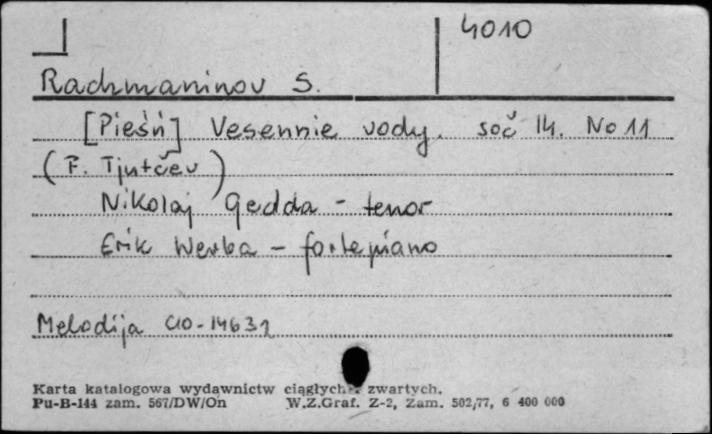 4010
Rachmaninov S.
[Pieśń] Vesennie vody. soč 14. No 11
(F. Tjutčev)
Nikolaj Gedda - tenor
Erik Werba - fortepiano
Melodija C10-14631
Karta katalogowa wydawnictw ciągłych i zwartych.
Pu-B-144 zam. 567/DW/On W.Z.Graf. Z-2, Zam. 502/77, 6 400 000